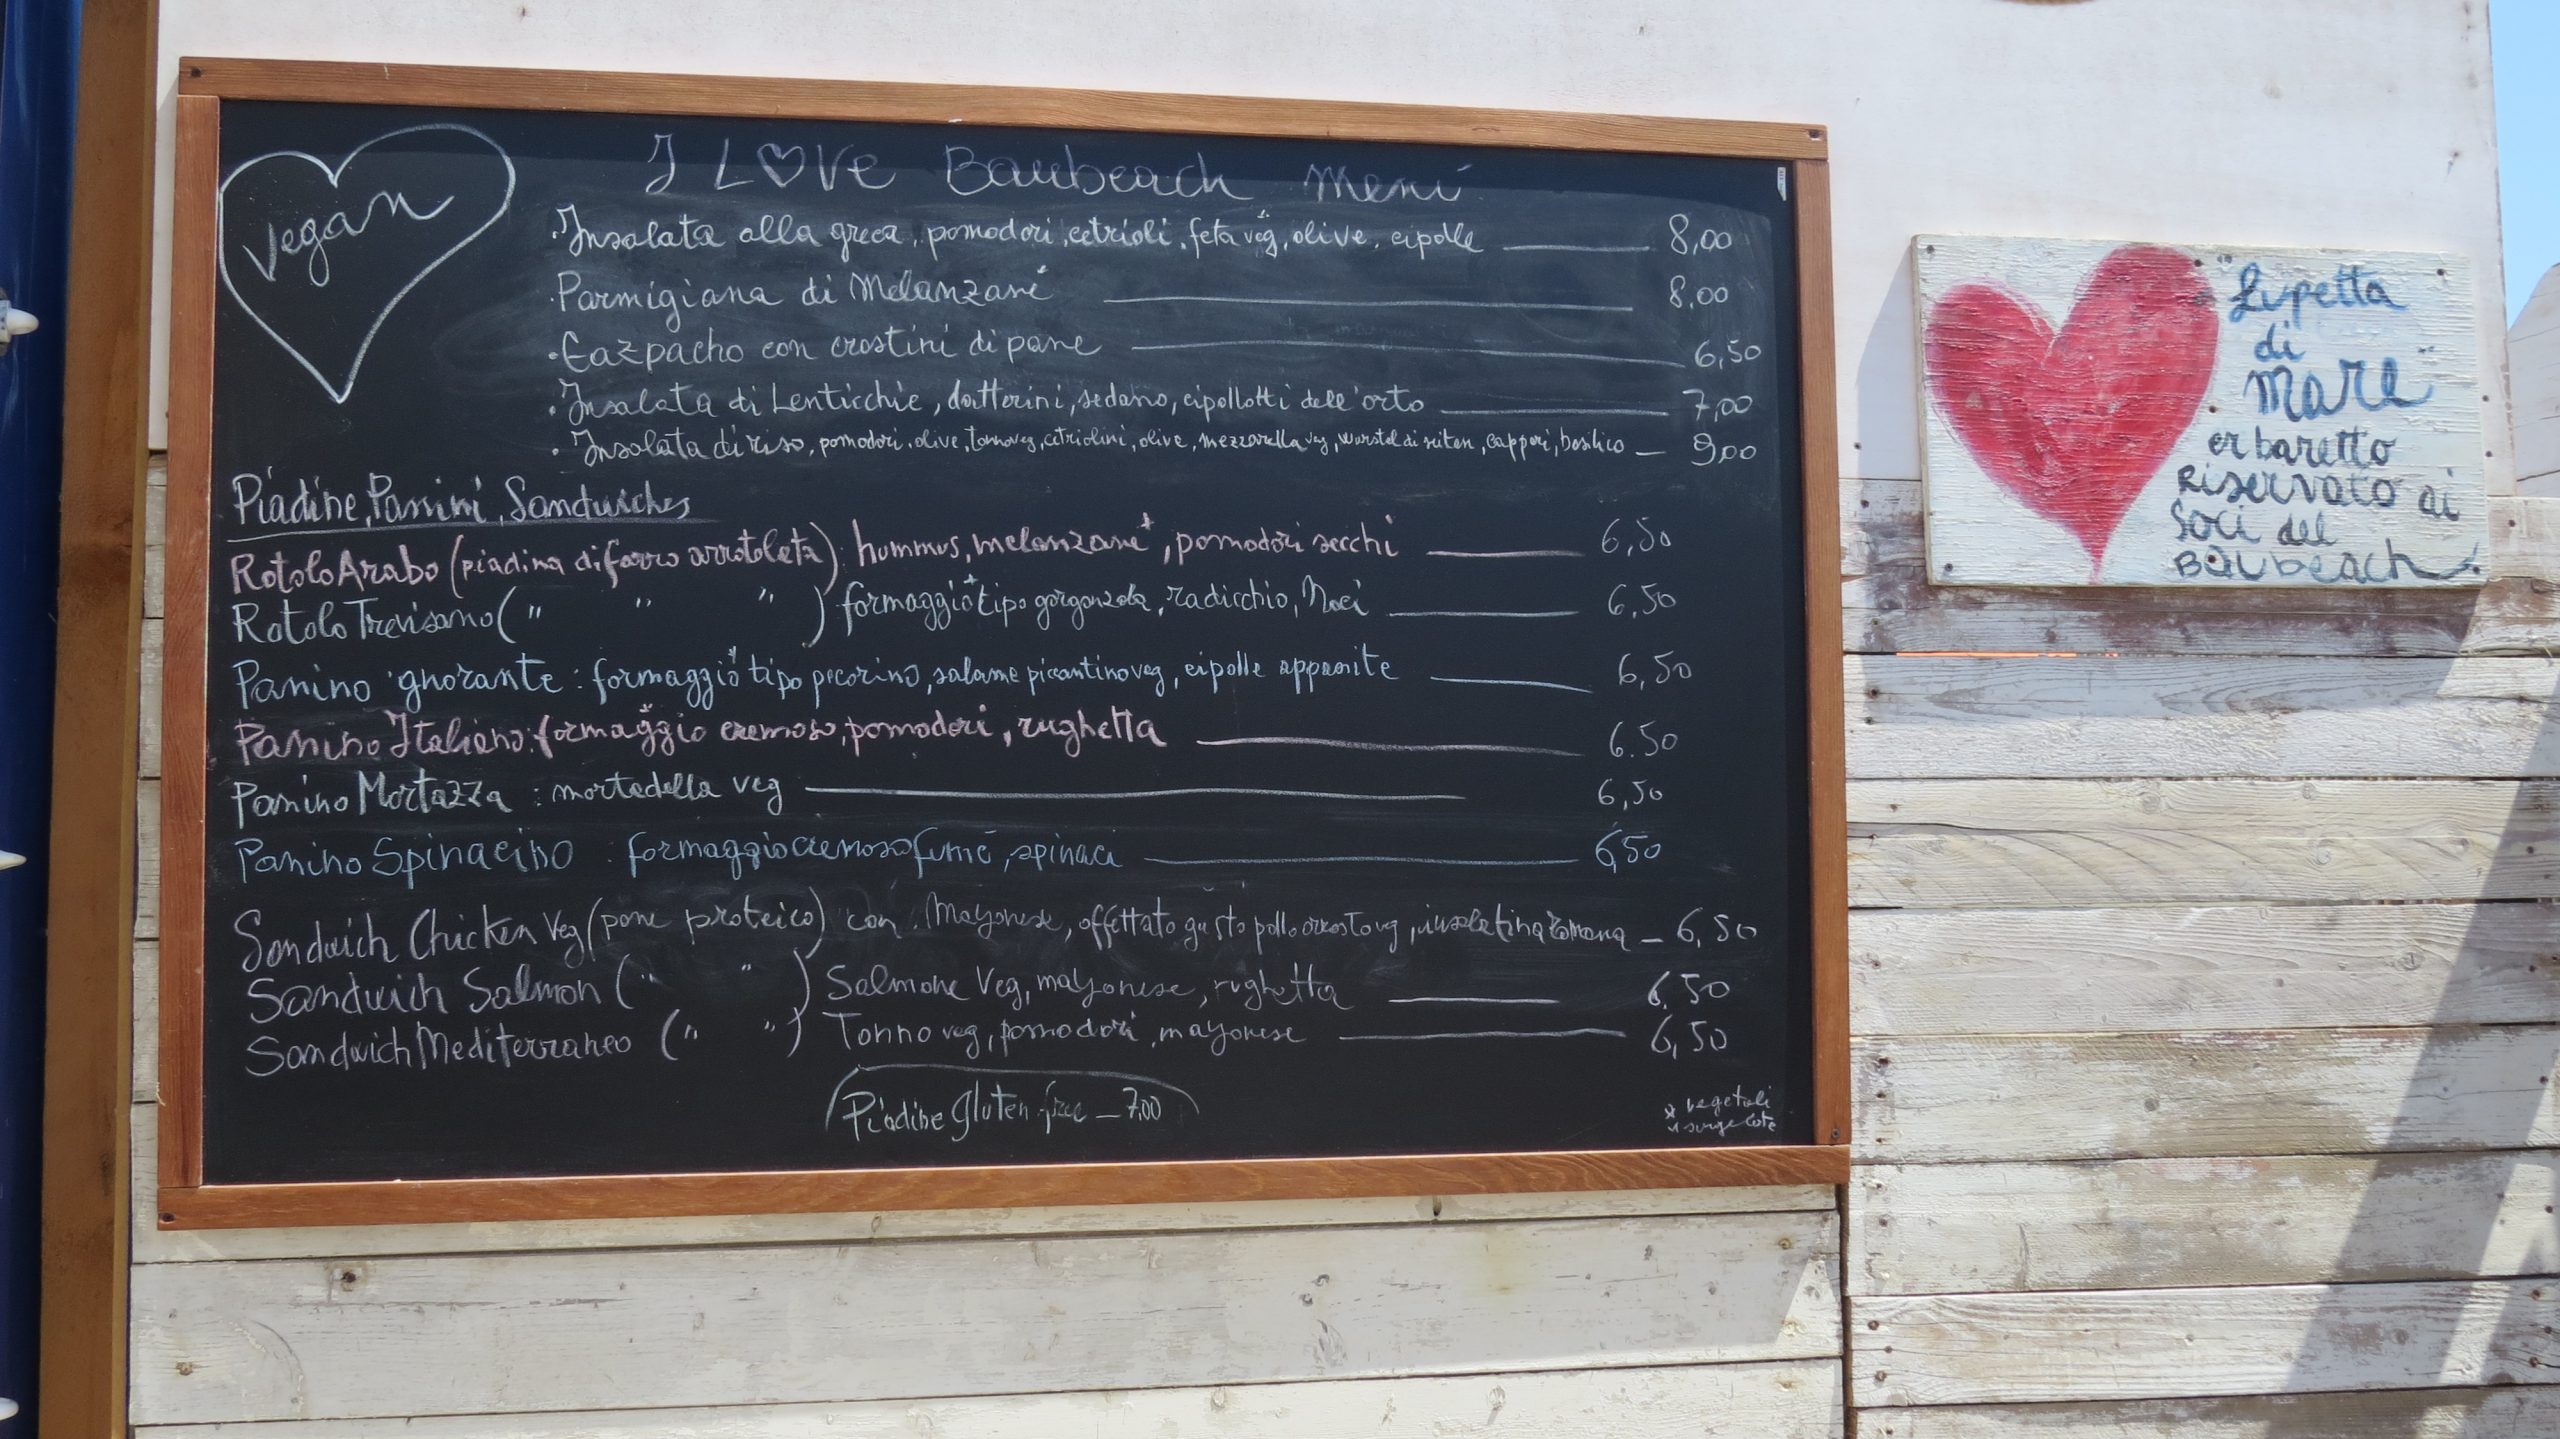 vegan
I LOVE Baubeach Menù
.Insalata alla greca, pomodori, cetrioli, feta veg, olive, cipolle 8,00
.Parmigiana di Melanzane 8,00
.Gazpacho con crostini di pane 6,50
.Insalata di Lenticchie, datterini, sedano, cipollotti dell'orto 7,00
.Insalata di riso, pomodori, olive, tonnoveg, cetriolini, olive, mozzarella veg, wurstel di seitan, capperi, basilico 9,00
Piadine, Panini, Sandwiches
Rotolo Arabo (piadina di farro arrotolata): hummus, melanzane*, pomodori secchi 6,50
Rotolo Trevisano (" " ") formaggio* tipo gorgonzola, radicchio, Noci 6,50
Panino ignorante: formaggio* tipo pecorino, salame piccantino veg, cipolle appassite 6,50
Panino Italiano: formaggio* cremoso, pomodori, rughetta 6.50
Panino Mortazza: mortadella veg 6,50
Panino Spinacino: formaggio cremoso fumé, spinaci 6,50
Sandwich Chicken Veg (pane proteico) con Mayonese, affettato gusto pollo arrosto veg, insalatina romana 6,50
Sandwich Salmon (" ") Salmone Veg, mayonese, rughetta 6,50
Sandwich Mediterraneo (" ") Tonno veg, pomodori, mayonese 6,50
Piadine Gluten free 7,00
* vegetali
* surgelate
"Lupetta
di
mare"
er baretto
Riservato ai
Soci del
Baubeach